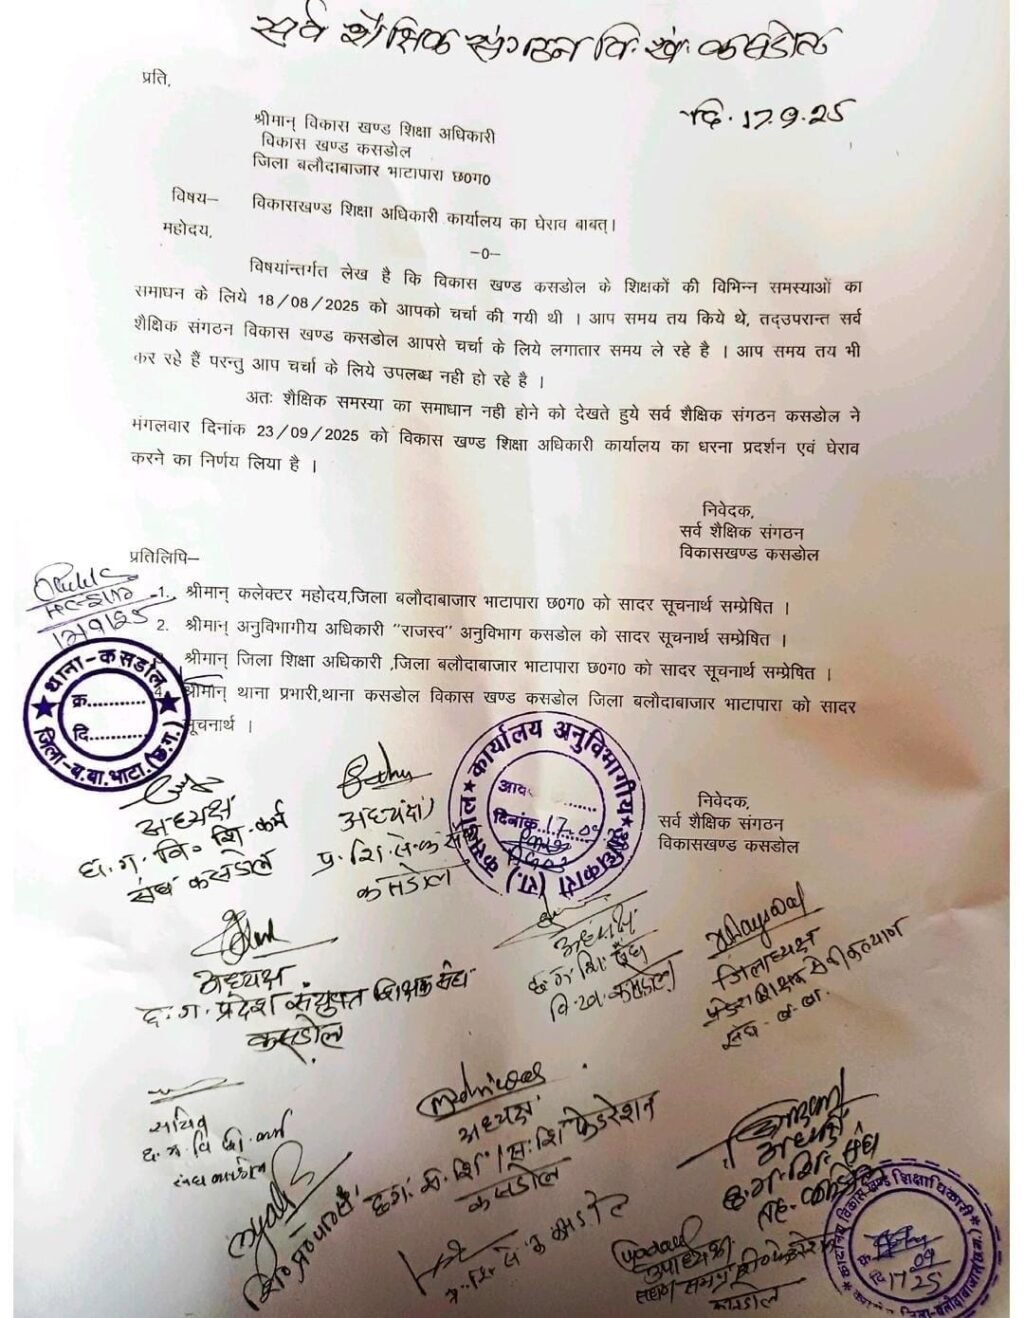 सर्व शैक्षिक संगठन वि. खं. कसडोल
प्रति,
दि. 17.9.25
श्रीमान् विकास खण्ड शिक्षा अधिकारी
विकास खण्ड कसडोल
जिला बलौदाबाजार भाटापारा छ0ग0
विषय– विकासखण्ड शिक्षा अधिकारी कार्यालय का घेराव बाबत्।
महोदय,
–0–
विषयांन्तर्गत लेख है कि विकास खण्ड कसडोल के शिक्षकों की विभिन्न समस्याओं का
समाधन के लिये 18/08/2025 को आपको चर्चा की गयी थी । आप समय तय किये थे, तद्उपरान्त सर्व
शैक्षिक संगठन विकास खण्ड कसडोल आपसे चर्चा के लिये लगातार समय ले रहे है । आप समय तय भी
कर रहे हैं परन्तु आप चर्चा के लिये उपलब्ध नही हो रहे है ।
अतः शैक्षिक समस्या का समाधान नही होने को देखते हुये सर्व शैक्षिक संगठन कसडोल ने
मंगलवार दिनांक 23/09/2025 को विकास खण्ड शिक्षा अधिकारी कार्यालय का धरना प्रदर्शन एवं घेराव
करने का निर्णय लिया है ।
निवेदक,
सर्व शैक्षिक संगठन
विकासखण्ड कसडोल
प्रतिलिपि–
1. श्रीमान् कलेक्टर महोदय,जिला बलौदाबाजार भाटापारा छ0ग0 को सादर सूचनार्थ सम्प्रेषित ।
2. श्रीमान् अनुविभागीय अधिकारी "राजस्व" अनुविभाग कसडोल को सादर सूचनार्थ सम्प्रेषित ।
श्रीमान् जिला शिक्षा अधिकारी ,जिला बलौदाबाजार भाटापारा छ0ग0 को सादर सूचनार्थ सम्प्रेषित ।
4. श्रीमान् थाना प्रभारी,थाना कसडोल विकास खण्ड कसडोल जिला बलौदाबाजार भाटापारा को सादर
सूचनार्थ ।
थाना-कसडोल
क्र............
दि............
जिला-ब.बा.भाटा.(छ.ग.)
कार्यालय अनुविभागीय अधिकारी (रा.) कसडोल
दिनांक 17-09
निवेदक,
सर्व शैक्षिक संगठन
विकासखण्ड कसडोल
अध्यक्ष
छ. ग. वि. शि. कर्म
संघ कसडोल
अध्यक्ष
प्र. शि. से. क. संघ
कसडोल
अध्यक्ष
छ. ग. प्रदेश संयुक्त शिक्षक संघ
कसडोल
अध्यक्ष
छ. ग. शि. संघ
वि. ख. कसडोल
जिलाध्यक्ष
प्रदेश शिक्षक सेवी कल्याण
संघ. ब. बा.
सचिव
अध्यक्ष
छ.ग. स. शि./स. शि. फेडरेशन
कसडोल
अध्यक्ष
छ. ग. शि. संघ
उपाध्यक्ष
कसडोल
कार्यालय विकास खण्ड शिक्षाधिकारी
दि. 17 09 25